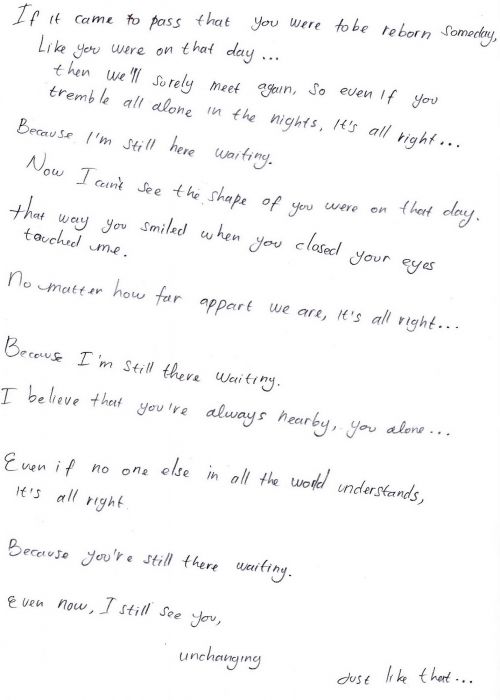 If it came to pass that you were to be reborn someday,
Like you were on that day...
then we'll surely meet again, so even if you
tremble all alone in the nights, It's all right...
Because I'm still here waiting.
Now I can't see the shape of you were on that day.
that way you smiled when you closed your eyes
touched me.
No matter how far appart we are, it's all right...
Because I'm still there waiting.
I believe that you're always nearby, you alone...
Even if no one else in all the world understands,
It's all right
Because you're still there waiting.
Even now, I still see you,
unchanging
Just like that...